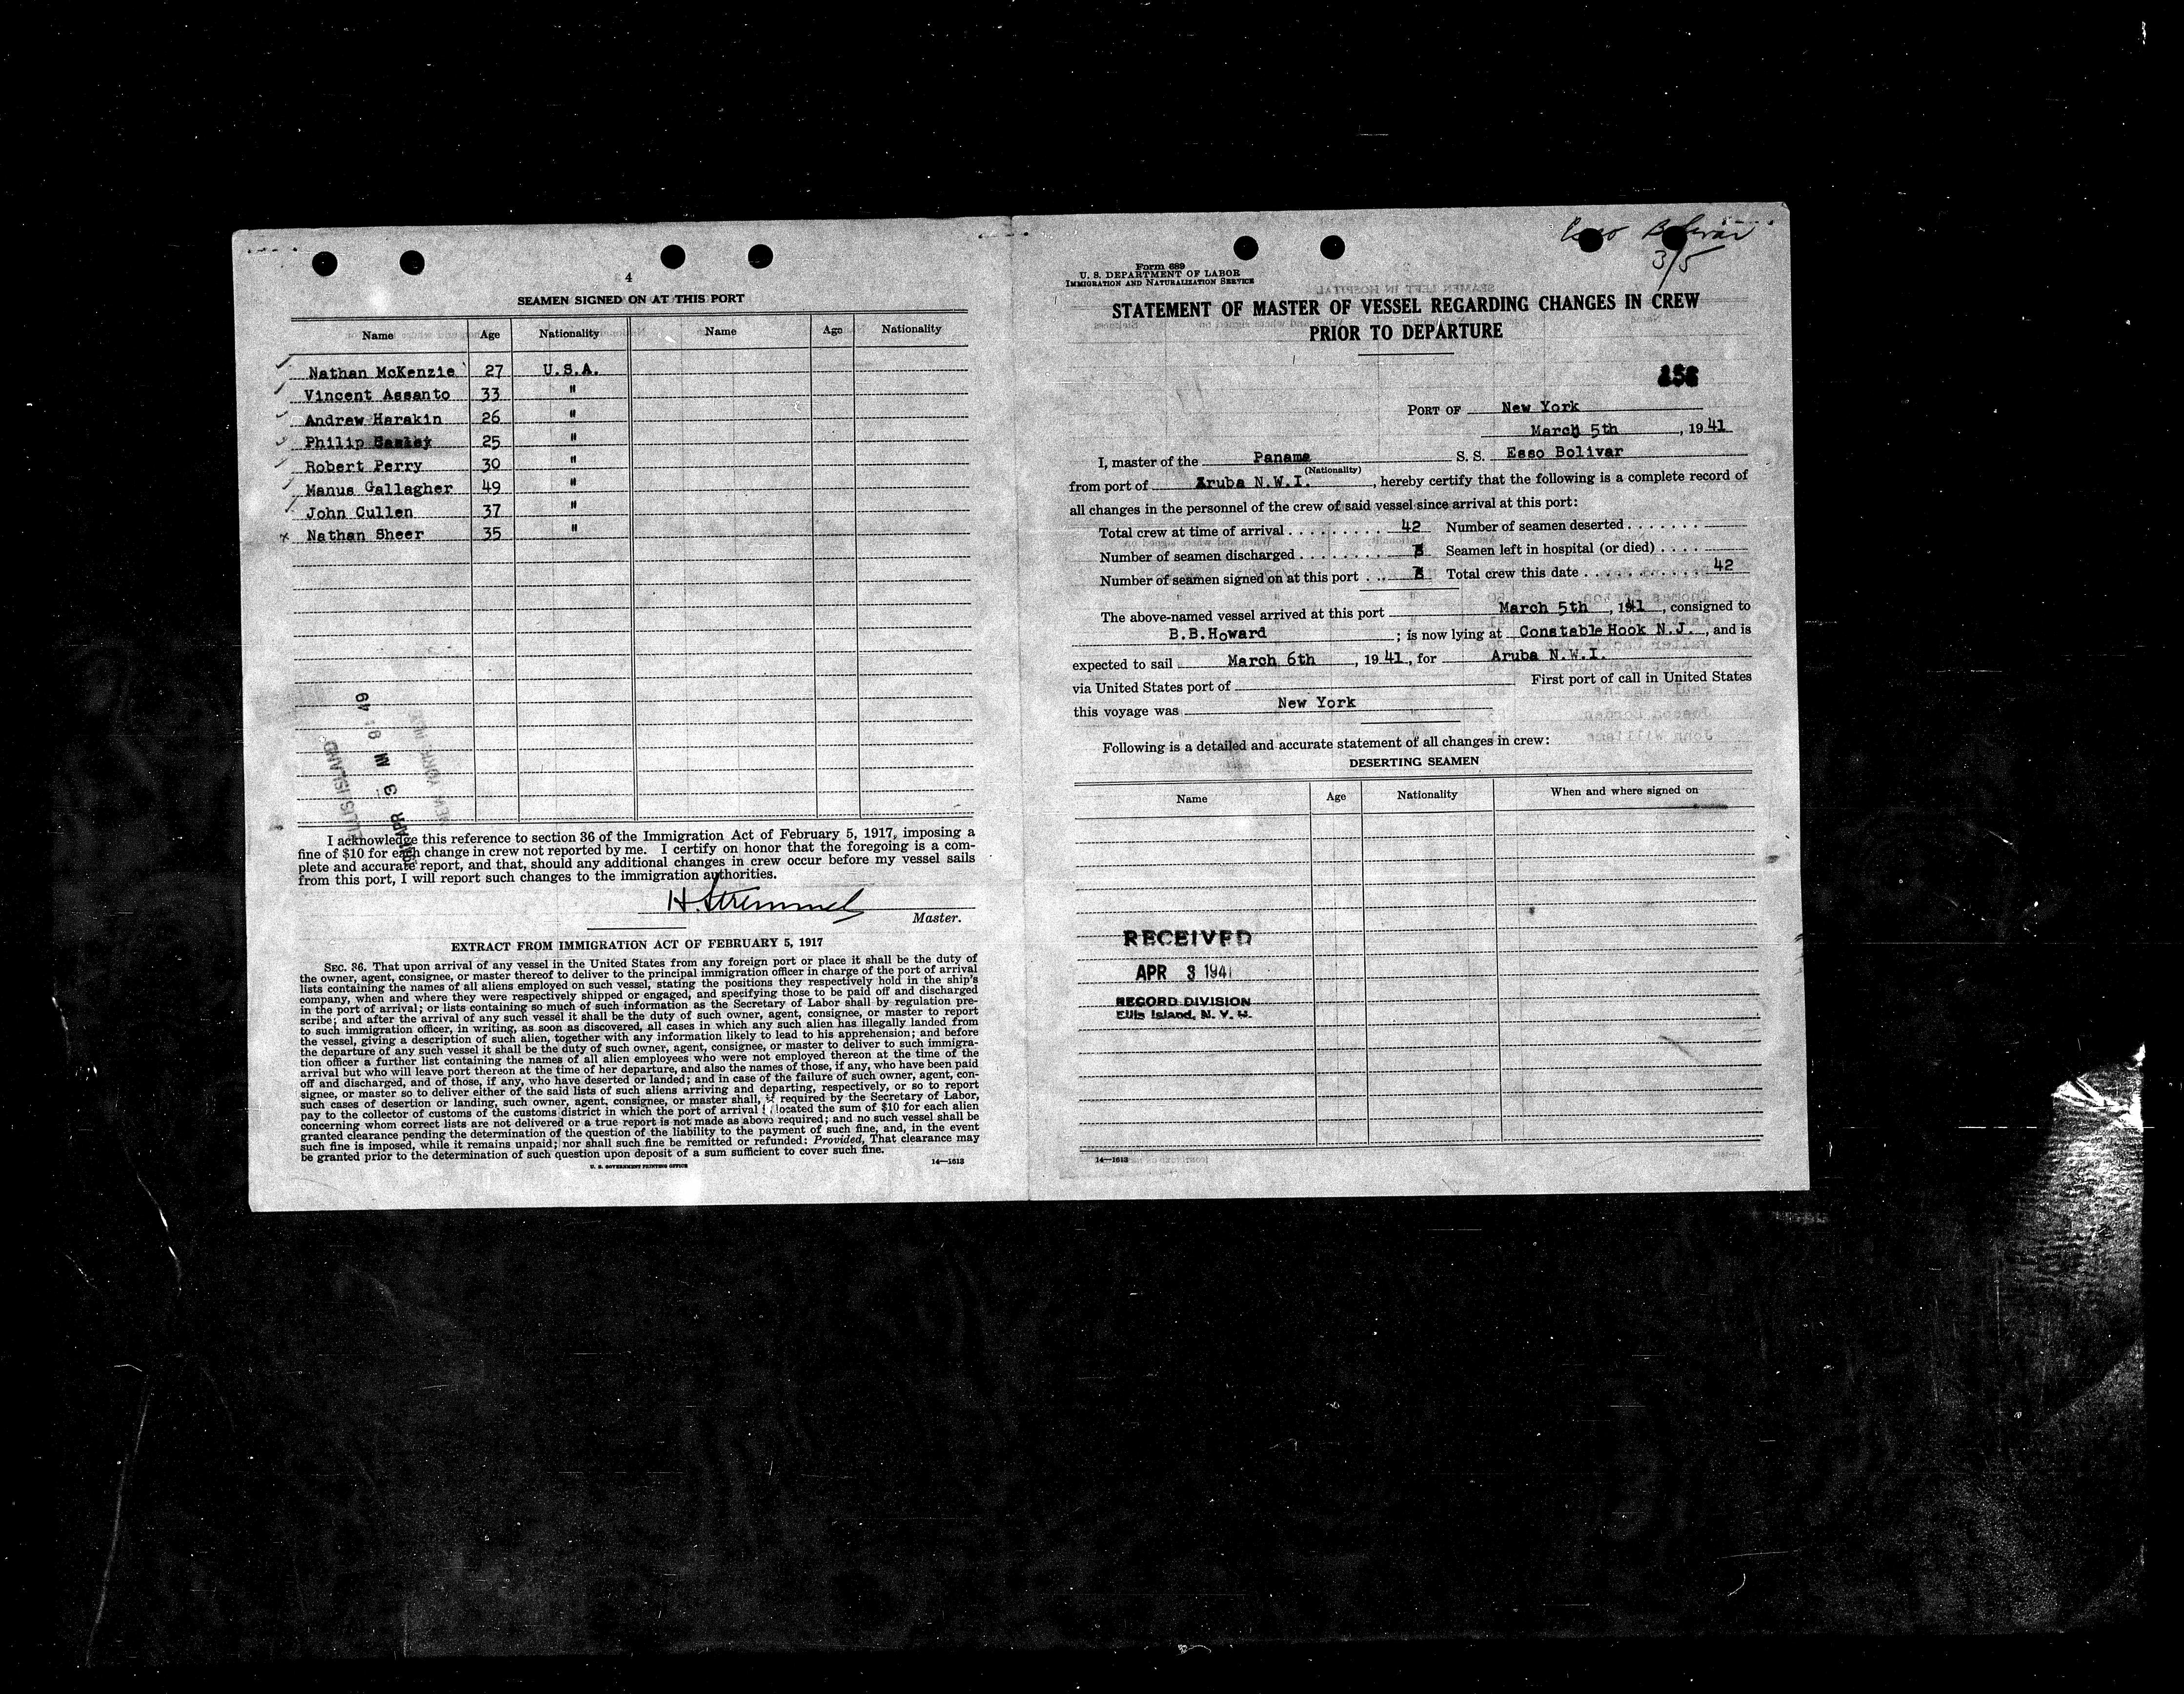 4
SEAMEN SIGNED ON AT THIS PORT
Name Age Nationality Name Age Nationality
Nathan McKenzie 27 U.S.A.
Vincent Assanto 33 "
Andrew Harakin 26 "
Philip 25 "
Robert Perry 30 "
Manus Gallagher 49 "
John Cullen 37 "
Nathan Sheer 35 "
ELLIS ISLAND
APR 3 AM 8:49
NEW YORK
I acknowledge this reference to section 36 of the Immigration Act of February 5, 1917, imposing a
fine of $10 for each change in crew not reported by me. I certify on honor that the foregoing is a com-
plete and accurate report, and that, should any additional changes in crew occur before my vessel sails
from this port, I will report such changes to the immigration authorities.
H. Stremmel
Master.
EXTRACT FROM IMMIGRATION ACT OF FEBRUARY 5, 1917
SEC. 36. That upon arrival of any vessel in the United States from any foreign port or place it shall be the duty of
the owner, agent, consignee, or master thereof to deliver to the principal immigration officer in charge of the port of arrival
lists containing the names of all aliens employed on such vessel, stating the positions they respectively hold in the ship's
company, when and where they were respectively shipped or engaged, and specifying those to be paid off and discharged
in the port of arrival; or lists containing so much of such information as the Secretary of Labor shall by regulation pre-
scribe; and after the arrival of any such vessel it shall be the duty of such owner, agent, consignee, or master to report
to such immigration officer, in writing, as soon as discovered, all cases in which any such alien has illegally landed from
the vessel, giving a description of such alien, together with any information likely to lead to his apprehension; and before
the departure of any such vessel it shall be the duty of such owner, agent, consignee, or master to deliver to such immigra-
tion officer a further list containing the names of all alien employees who were not employed thereon at the time of the
arrival but who will leave port thereon at the time of her departure, and also the names of those, if any, who have been paid
off and discharged, and of those, if any, who have deserted or landed; and in case of the failure of such owner, agent, con-
signee, or master so to deliver either of the said lists of such aliens arriving and departing, respectively, or so to report
such cases of desertion or landing, such owner, agent, consignee, or master shall, if required by the Secretary of Labor,
pay to the collector of customs of the customs district in which the port of arrival is located the sum of $10 for each alien
concerning whom correct lists are not delivered or a true report is not made as above required; and no such vessel shall be
granted clearance pending the determination of the question of the liability to the payment of such fine, and, in the event
such fine is imposed, while it remains unpaid; nor shall such fine be remitted or refunded: Provided, That clearance may
be granted prior to the determination of such question upon deposit of a sum sufficient to cover such fine.
U. S. GOVERNMENT PRINTING OFFICE 14—1613
Esso Bolivar
3/5
Form 689
U. S. DEPARTMENT OF LABOR
IMMIGRATION AND NATURALIZATION SERVICE
STATEMENT OF MASTER OF VESSEL REGARDING CHANGES IN CREW
PRIOR TO DEPARTURE
PORT OF New York
March 5th, 1941
I, master of the Panama S. S. Esso Bolivar
(Nationality)
from port of Aruba N.W.I., hereby certify that the following is a complete record of
all changes in the personnel of the crew of said vessel since arrival at this port:
Total crew at time of arrival 42 Number of seamen deserted
Number of seamen discharged Seamen left in hospital (or died)
Number of seamen signed on at this port Total crew this date 42
The above-named vessel arrived at this port March 5th, 1941, consigned to
B.B.Howard; is now lying at Constable Hook N.J., and is
expected to sail March 6th, 1941, for Aruba N.W.I.
via United States port of First port of call in United States
this voyage was New York
Following is a detailed and accurate statement of all changes in crew:
DESERTING SEAMEN
Name Age Nationality When and where signed on
RECEIVED
APR 3 1941
RECORD DIVISION
Ellis Island, N. Y. H.
14—1613